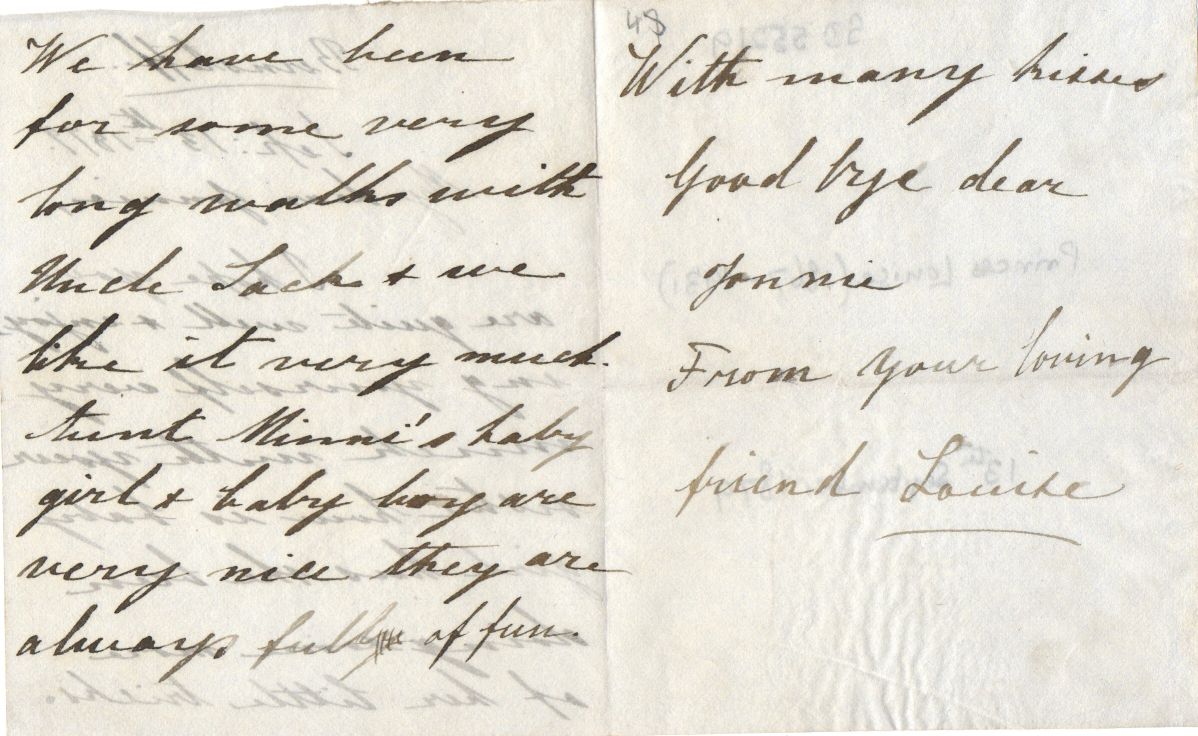 We have been
for some very
long walks with
Uncle Jack & we
like it very much.
Aunt Minni's baby
girl & baby boy are
very nice they are
always full of fun.
48
With many kisses
Good bye dear
Tonnie
From your loving
friend Louise